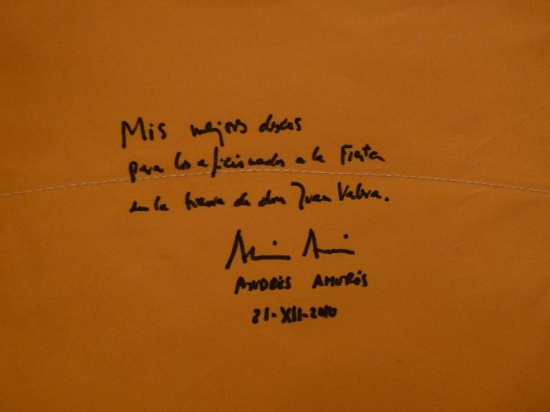 Mis mejores deseos
para los aficionados a la Fiesta
en la tierra de don Juan Valera.
ANDRÉS AMORÓS
21-XII-2010